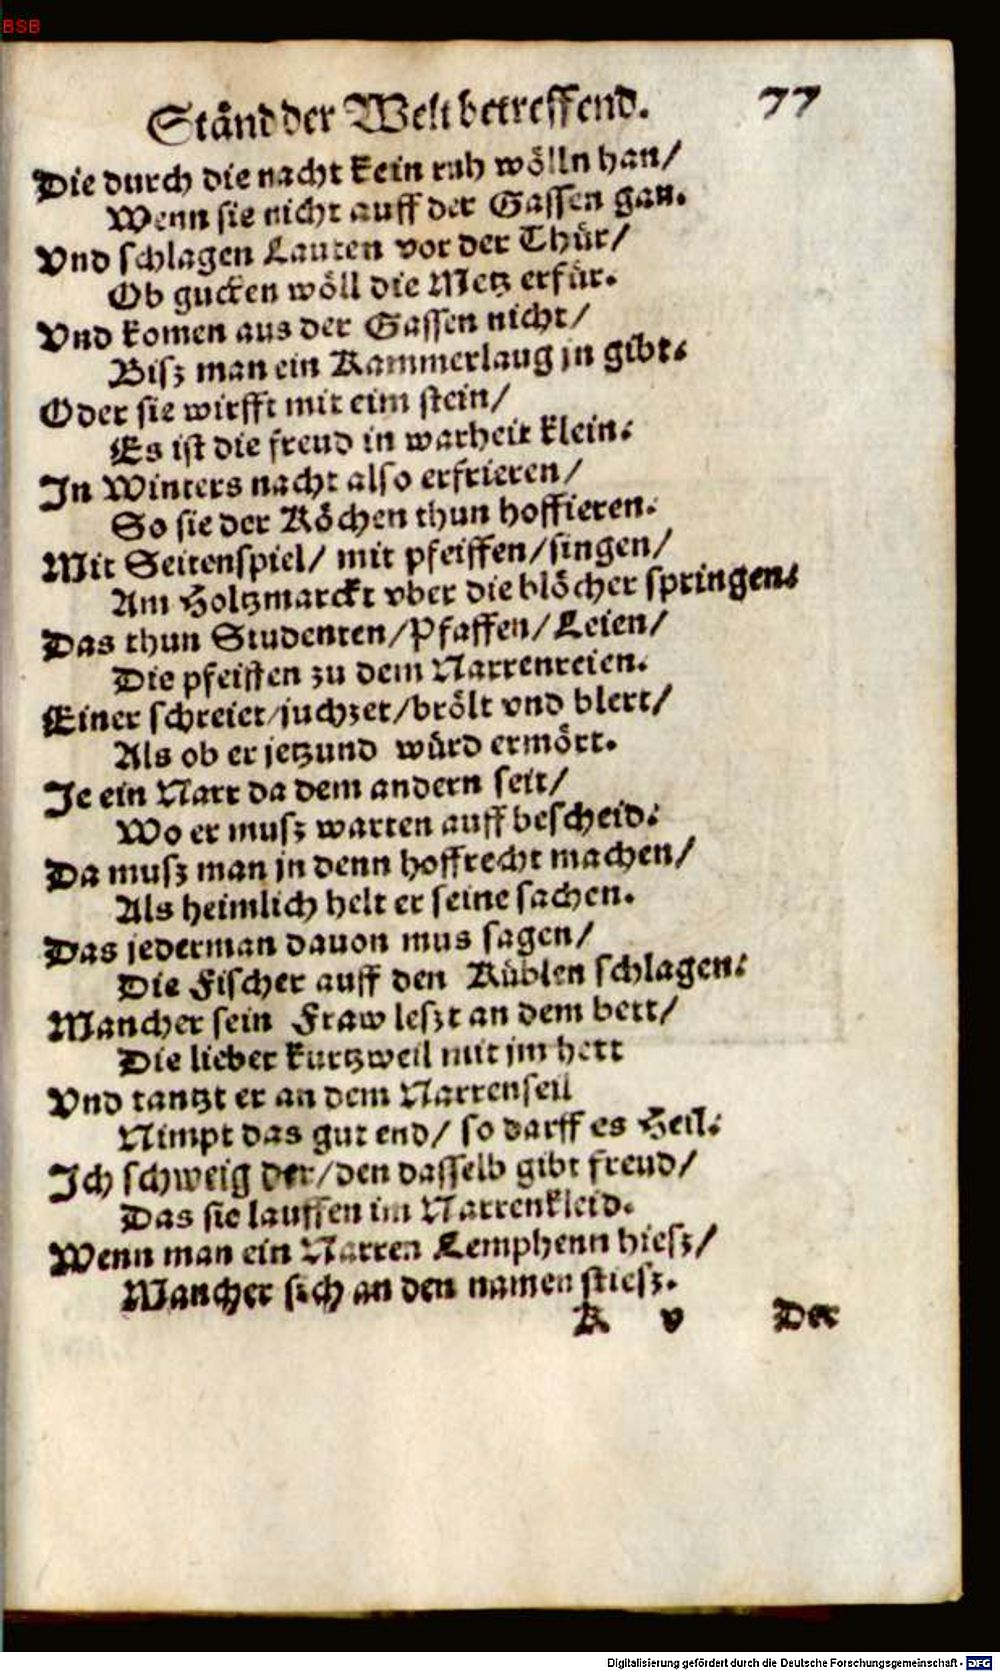 BSB
Ständ der Welt betreffend. 77
Die durch die nacht kein ruh wölln han/
Wenn sie nicht auff der Gassen gan.
Vnd schlagen Lauten vor der Thür/
Ob gucken wöll die Metz erfür.
Vnd komen aus der Gassen nicht/
Bisz man ein Kammerlaug jn gibt.
Oder sie wirfft mit eim stein/
Es ist die freud in warheit klein.
In Winters nacht also erfrieren/
So sie der Köchen thun hoffieren.
Mit Seitenspiel/ mit pfeiffen/singen/
Am Holtzmarckt vber die blöcher springen.
Das thun Studenten/Pfaffen/Leien/
Die pfeiffen zu dem Narrenreien.
Einer schreiet/juchzet/brölt vnd blert/
Als ob er jetzund würd ermört.
Je ein Narr da dem andern seit/
Wo er musz warten auff bescheid.
Da musz man jn denn hoffrecht machen/
Als heimlich helt er seine sachen.
Das jederman dauon mus sagen/
Die Fischer auff den Küblen schlagen.
Mancher sein Fraw leszt an dem bett/
Die lieber kurtzweil mit jm hett
Vnd tantzt er an dem Narrenseil
Nimpt das gut end/ so darff es Heil.
Ich schweig der/den dasselb gibt freud/
Das sie lauffen im Narrenkleid.
Wenn man ein Narren Lemphenn hiesz/
Mancher sich an den namen stiesz.
K v Der
Digitalisierung gefördert durch die Deutsche Forschungsgemeinschaft - DFG